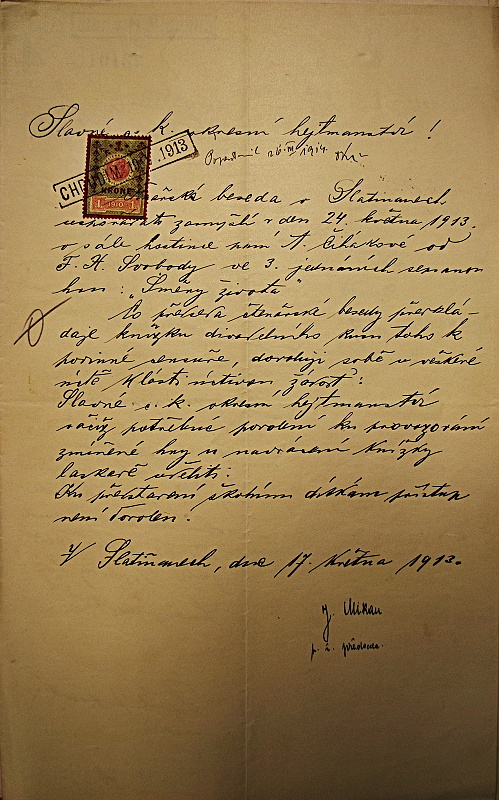 Slavné c. k. okresní hejtmanství!
26/III 1914
CHR 1913
KRONE
1 1910 1
řská beseda v Slatinanech
uspořádati zamýšlí v den 24. května 1913.
v sále hostince paní A. Čihákové od
F. X. Svobody ve 3. jednáních sehranou
hru: "Směry života"
Co přísera čtenářské besedy překlá-
daje knížku divadelního kusu toho k
povinné censuře, dovoluji sobě v veškeré
úctě klásti uctivou žádost:
Slavné c. k. okresní hejtmanství
račiž potřebné povolení ku provozování
zmíněné hry u navrácení knížky
laskavě uděliti.
Ku představení školním dítkám přístup
není dovolen!
V Slatinanech, dne 17. května 1913.
J. Mikan
p. č. předseda.